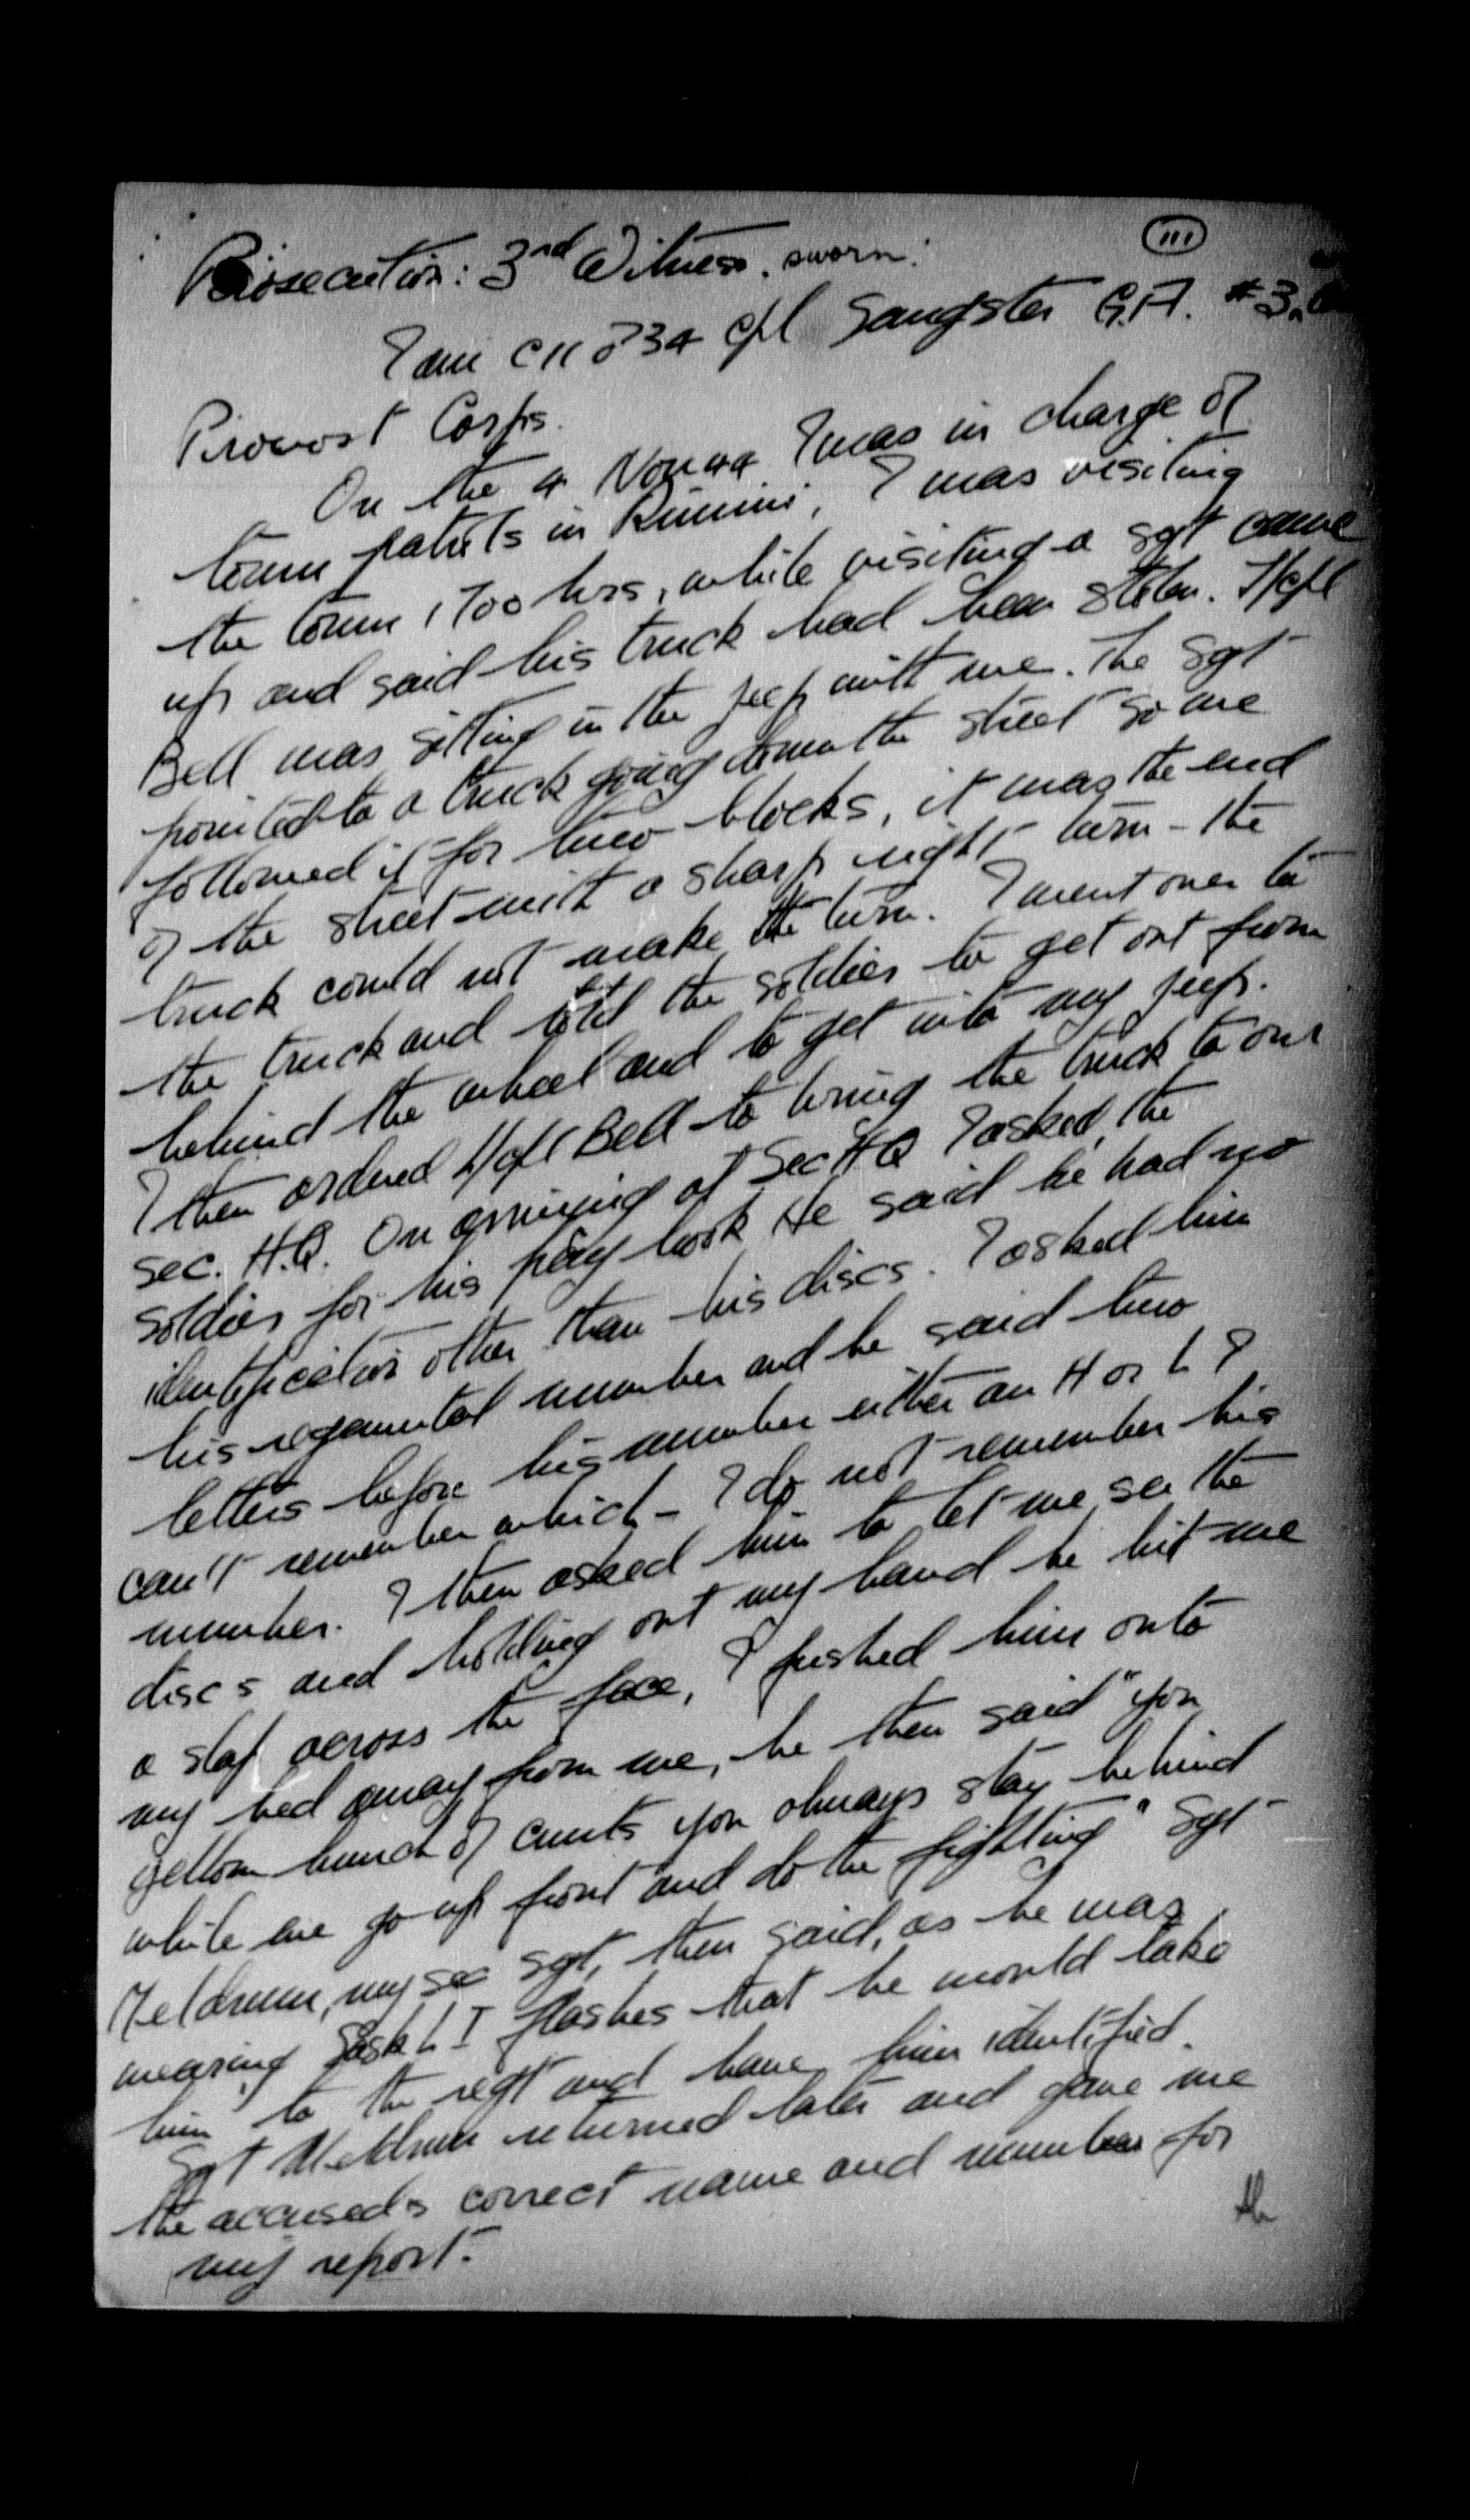 III
Prosecution: 3rd Witness. sworn:
I am C11834 Cpl Sangster G.A. #3
Provost Corps.
On the 4 Nov 44 I was in charge of
town patrols in Rimini, I was visiting
the town 1700 hrs, while visiting a sgt came
up and said his truck had been stolen. L/Cpl
Bell was sitting in the jeep with me. The Sgt
pointed to a truck going down the street so we
followed it for two blocks, it was the end
of the street with a sharp right turn - the
truck could not make the turn. I went over to
the truck and told the soldier to get out from
behind the wheel and to get into my jeep.
I then ordered L/Cpl Bell to bring the truck to our
sec. H.Q. On arriving at Sec HQ I asked the
soldier for his pay book He said he had no
identification other than his discs. I asked him
his regimental number and he said two
letters before his number either an H or L I
can't remember which - I do not remember his
number. I then asked him to let me see the
discs and holding out my hand he hit me
a slap across the face, I pushed him onto
my bed away from me, he then said "you
yellow bunch of cunts you always stay behind
while we go up front and do the fighting" Sgt
Meldrum, my sec sgt, then said, as he was
wearing Sask L I flashes that he would take
him to the regt and have him identified.
Sgt Meldrum returned later and gave me
the accused's correct name and number for
my report.